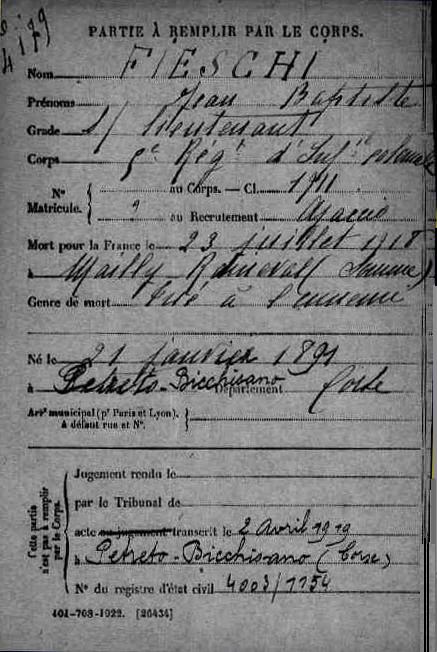 4179
PARTIE À REMPLIR PAR LE CORPS.
Nom FIESCHI
Prénoms Jean Baptiste
Grade S/ lieutenant
Corps 5e Régt d'Infie coloniale
N° Matricule. { au Corps. — Cl. 1911
2 au Recrutement Ajaccio
Mort pour la France le 23 juillet 1918
à Mailly Raineval (Somme)
Genre de mort Tué à l'ennemi
Né le 21 janvier 1891
à Petreto-Bicchisano Département Corse
Arrt municipal (pr Paris et Lyon).
à défaut rue et N°.
Cette partie n'est pas à remplir par le Corps.
Jugement rendu le
par le Tribunal de
acte ou jugement transcrit le 2 Avril 1919
à Petreto-Bicchisano (Corse)
N° du registre d'état civil 4003/1154
401-708-1922. [26434]